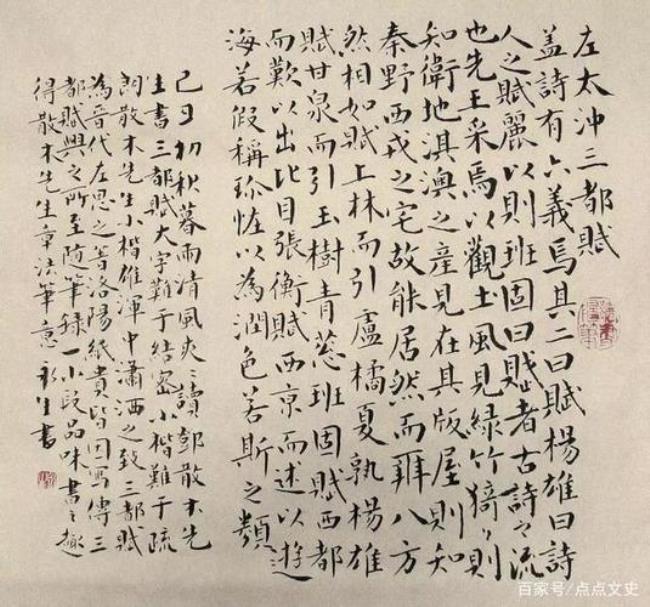 左太沖三都賦
蓋詩有六義焉其二曰賦楊雄曰詩
人之賦麗以則班固曰賦者古詩之流
也先王采焉以觀土風見綠竹猗〻則
知衛地淇澳之產見在其版屋則知
秦野西戎之宅故能居然而辨八方
然相如賦上林而引盧橘夏熟楊雄
賦甘泉而引玉樹青蔥班固賦西都
而歎以出比目張衡賦西京而述以遊
海若假稱珍怪以為潤色若斯之類
己丑初秋暮雨清風爽〻讀鄧散木先
生書三都賦大字難于結密小楷難于疏
朗散木先生小楷雄渾中瀟洒之致三都賦
為晉代左思之著洛陽紙貴皆因寫傳三
都賦興之所至隨筆錄一小段品味書之趣
得散木先生章法筆意 永生書
百家号/点点文史